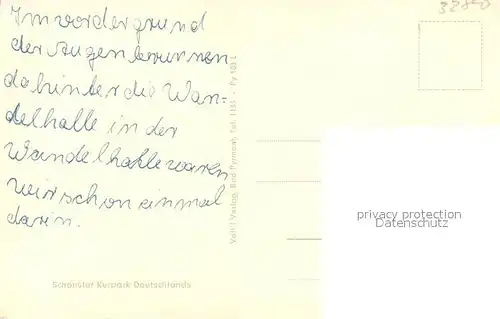 Im vordergrund
der Augenbrunnen
dahinter die Wan-
delhalle in der
Wandelhalle waren
wir schon einmal
darin.
Schönster Kurpark Deutschlands
Verlag, Bad Pyrmont, Tel. 1155 - Py 103 L
privacy protection
Datenschutz